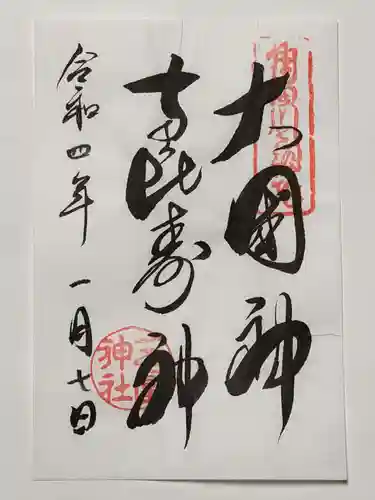 大國神
恵毘寿神
令和四年 一月七日
神社